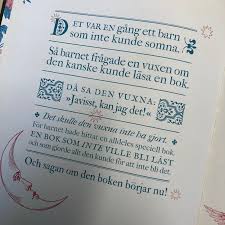 DET VAR EN gång ett barn
som inte kunde somna.
Så barnet frågade en vuxen om
den kanske kunde läsa en bok.
DÅ SA DEN VUXNA:
»Javisst, kan jag det!«
Det skulle den vuxna inte ha gjort.
För barnet hade hittat en alldeles speciell bok
EN BOK SOM INTE VILLE BLI LÄST
och som gjorde allt den kunde för att inte bli det.
Och sagan om den boken börjar nu!